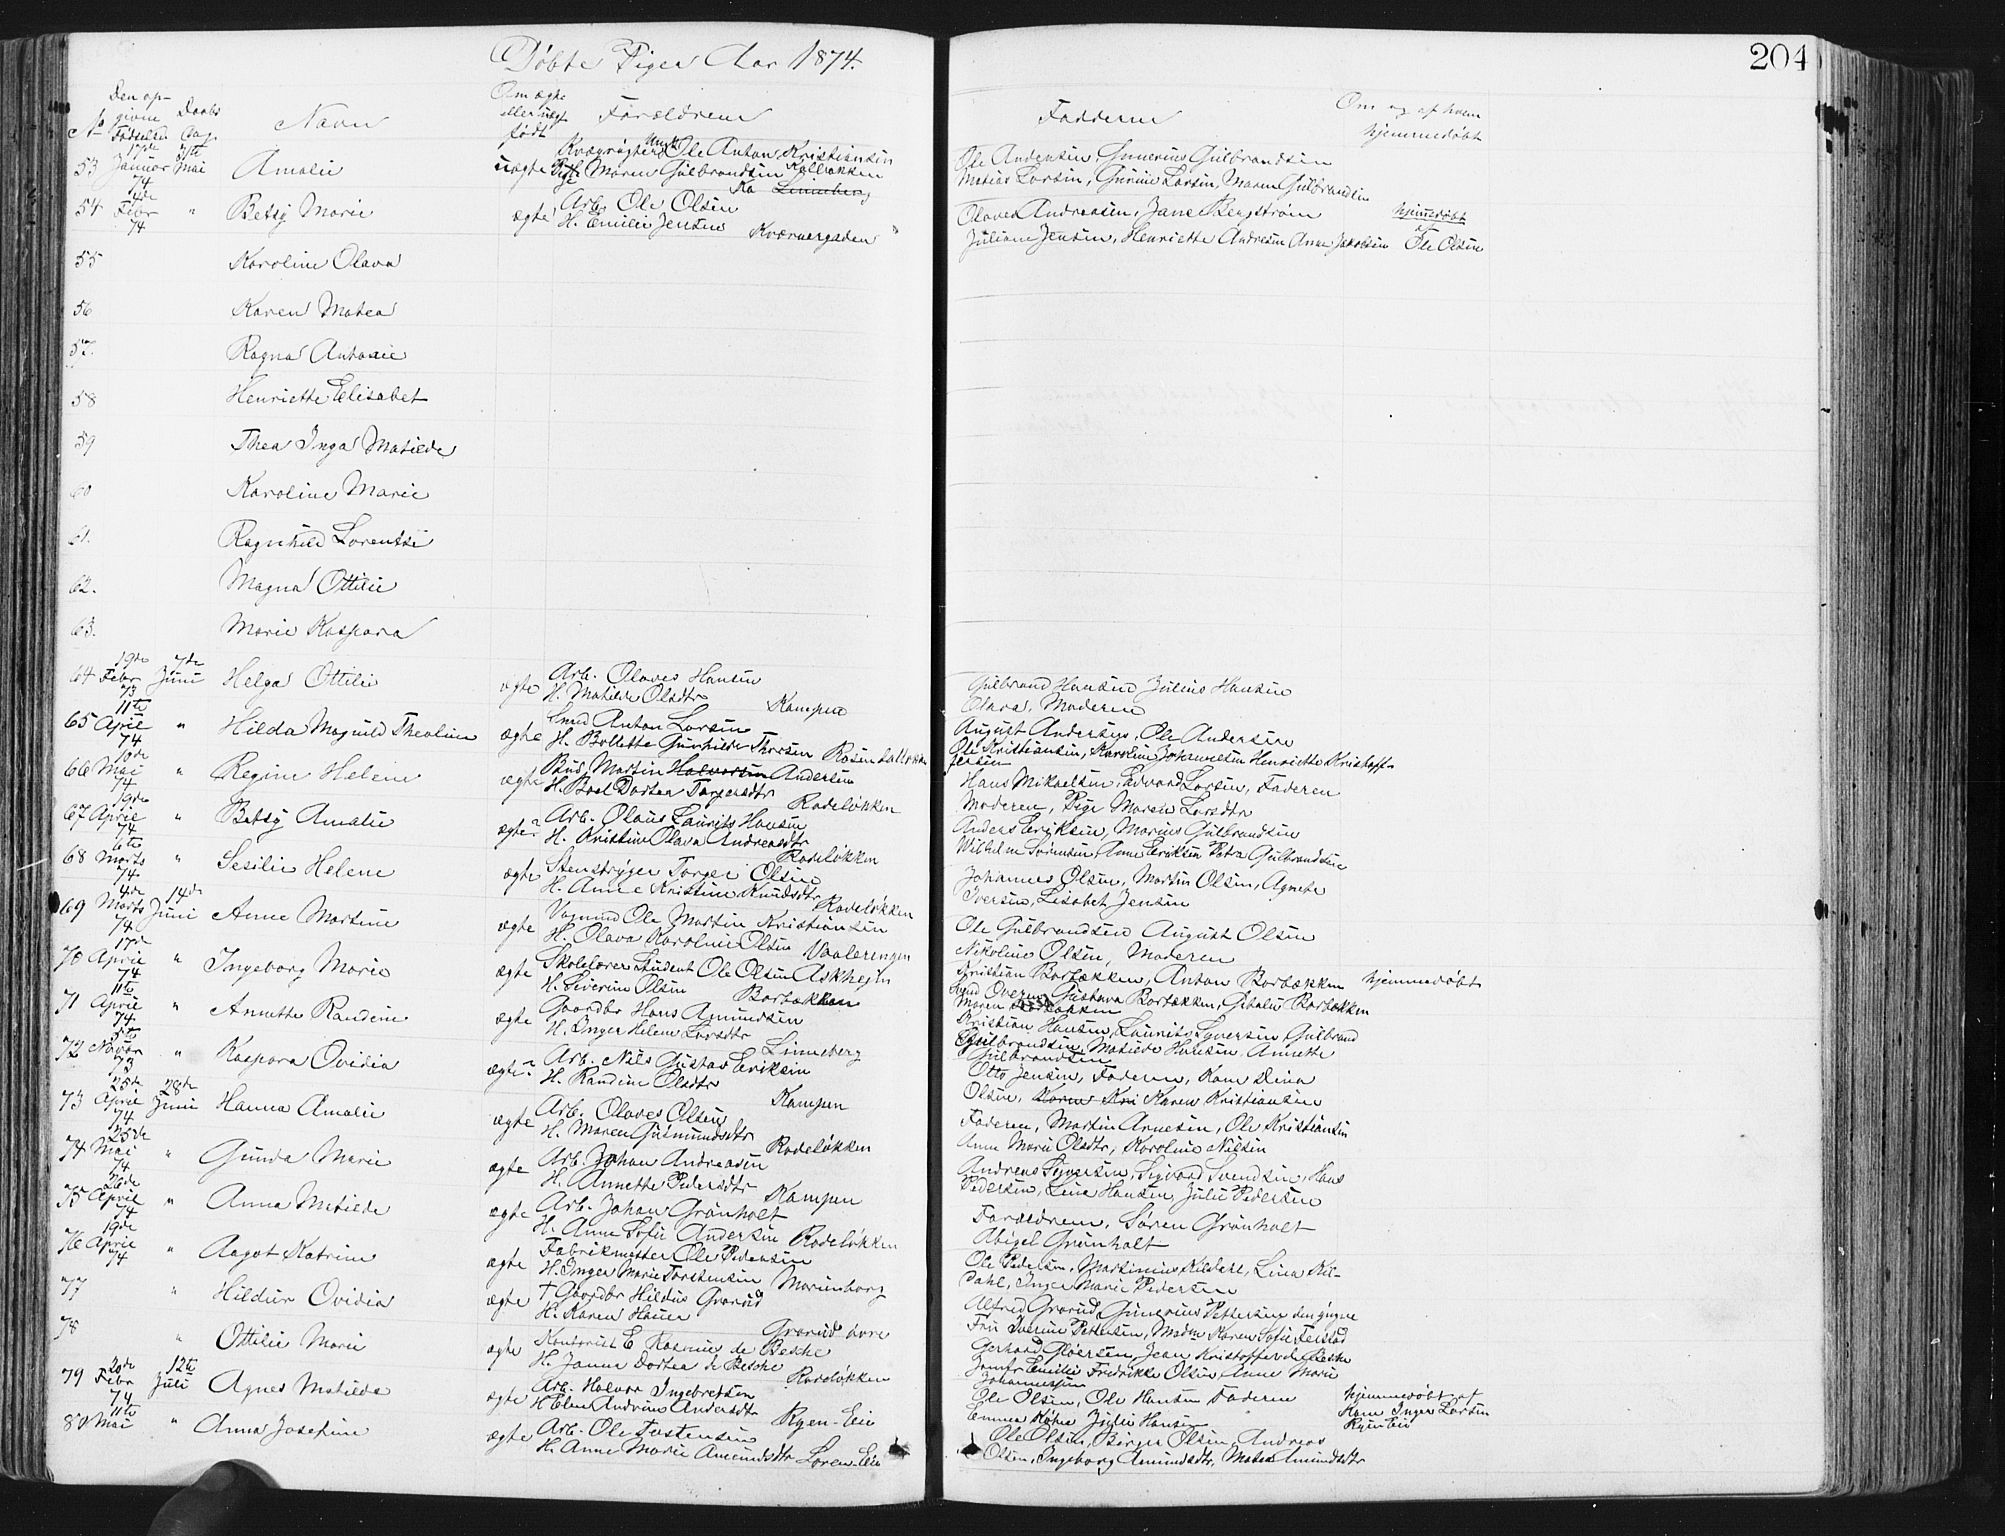 Døbte Piger Aar 1874.
204
No
Den op-
givne
Fødselsd
Daabs
dag
Navn
Om ægte
eller uægt
født
Forældrene
Fadderne
Om og af hvem
hjemmedøbt
53 17de Januar 74 31te Mai Amalie uægte Ungk Ole Anton Kristiansen
Pige Maren Gulbrandsen Kalbakken
Ole Andersen, Gunerius Gulbrandsen
Matias Larsen, Gurine Larsen, Maren Gulbrandsen
54 4de Febr 74 " Betsy Marie ægte Arb. Ole Olsen
H. Emilie Jensen Kværnergaden
Olaves Andreasen, Jane Bergstrøm
Juliane Jensen, Henriette Andresen Anne Jakobsen
hjemmedøbt
af
Ole Olsen
55 Karoline Olava
56 Karen Matea
57. Ragna Antonie
58 Henriette Elisabet
59 Thea Inga Matilde
60 Karoline Marie
61. Ragnhild Lorentse
62. Magna Ottilie
63. Marie Kaspara
64 19de Febr 73 7de Juni Helga Ottilie ægte Arb. Olaves Hansen
H. Matilde Olsdtr Kampen
Gulbrand Hansen Julius Hansen
Olava, Moderen
65 11te April 74 " Hilda Magnild Theoline ægte Smed Anton Larsen
H. Bollette Gunhilde Thorsen Rosendalløkken
August Andersen, Ole Andersen
Ole Kristiansen, Karoline Johannesen Henriette Kristoff-
fersen
66 10de Mai 74 " Regine Helene ægte Bud Martin Halvorsen Andersen
H. Boel Dortea Torgersdtr Rodeløkken
Hans Mikaelsen, Edvard Larsen, Faderen
Moderen, Pige Maren Larsdtr
67 19de April 74 " Betsy Amalie ægte Arb. Olaus Laurits Hansen
H. Kristine Olava Andreasdtr Rodeløkken
Anders Eriksen, Marius Gulbrandsen
Wilhelm Sørensen, Anne Eriksen Petra Gulbrandsen
68 6te Marts 74 " Sesilie Helene ægte Stenstryger Torger Olsen
H. Anne Kristine Knudsdtr Rodeløkken
Johannes Olsen, Martin Olsen, Agnete
Iversen, Lisabet Jensen
69 4de Marts 74 14de Juni Anne Martine ægte Vognmd Ole Martin Kristiansen
H. Olava Karoline Olsen Vaalerengen
Ole Gulbrandsen August Olsen
Nikoline Olsen, Moderen
70 17de April 74 " Ingeborg Marie ægte Skolelærer Student Ole Olsen Askhejm
H. Severine Olsen Borbakken
Kristian Borbækken, Anton Borbækken hjemmedøbt
Gustava Borbækken,
71 11te April 74 " Annette Randine ægte Gaardbr Hans Amundsen
H. Inger Helene Larsdtr Linneberg
Kristian Hansen, Laurits Syversen Gulbrand
Gulbrandsen Matilde Hansen Annette
Gulbrandsen
72 5te Novbr 73 " Kaspara Ovidia ægte Arb. Nils Gustav Eriksen
H. Randine Olsdtr Kampen
Otto Jensen, Faderen, Kone Dina
Olsen, Karen Kri Karen Kristiansen
73 25de April 74 28de Juni Hanna Amalie ægte Arb. Olaves Olsen
H. Maren Gudmundsdtr Rodeløkken
Faderen, Martin Arnesen, Ole Kristiansen
Anne Marie Olsdtr, Karoline Nilsen
74 25de Mai 74 " Gunda Marie ægte Arb. Johan Andreasen
H. Annette Pedersdtr Kampen
Andreas Syversen, Sigvard Svendsen, Hans
Pedersen, Lina Hansen, Julie Pedersen
75 26de April 74 " Anna Matilde ægte Arb. Johan Grønholt
H. Anne Sofie Andersen Rodeløkken
Forældrene, Søren Grønholt
Abigel Grønholt
76 19de April 74 " Aagot Katrine ægte Fabrikmester Ole Pedersen
H. Inger Marie Torstensen Marienborg
Ole Pedersen, Martinius Kildahl, Lina Kil-
dahl, Inger Marie Pedersen
77 " Hildur Ovidia ægte † Gaardbr Hildus Grorud
H. Karen Hauer Grorud øvre
Alfred Grorud, Gunerius Pettersen den yngre
Fru Iverine Pettersen, Madm Karen Sofie
78 " Ottilie Marie ægte E Rasmus de Besche
H. Janna Dortea de Besche Rodeløkken
Gerhard Gløersen, Jean Kristoffer de Beske
Jomfr Emilie Fredrikke Olsen, Anne Marie
Johannessen
79 20de Febr 74 12te Juli Agnes Matilde ægte Arb. Halvor Ingebretsen
H Elen Andrine Andersdtr Ryen-Eie
Ole Olsen, Ole Hansen Faderen
Emma Julie Hansen
hjemmedøbt af
Kone Inger Larsen
Ryen Eie
80 11te Mai " Anna Josefine ægte Arb. Ole Tostensen
H. Anne Marie Amundsdtr Loren-Eie
Ole Olsen, Børger Olsen, Andreas
Olsen, Ingeborg Amundsdtr, Matea Amundsdtr